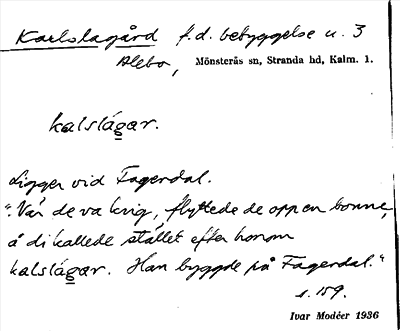 Karlslagård f.d. bebyggelse u. 3
Alebo, Mönsterås sn, Stranda hd, Kalm. l.
kalslágar.
Ligger vid Fagerdal.
"Når de va krig, flyttede de opp en bonne,
å di kallede stället efter honom
kalslágar. Han byggde på Fagerdal."
s. 159.
Ivar Modéer 1936